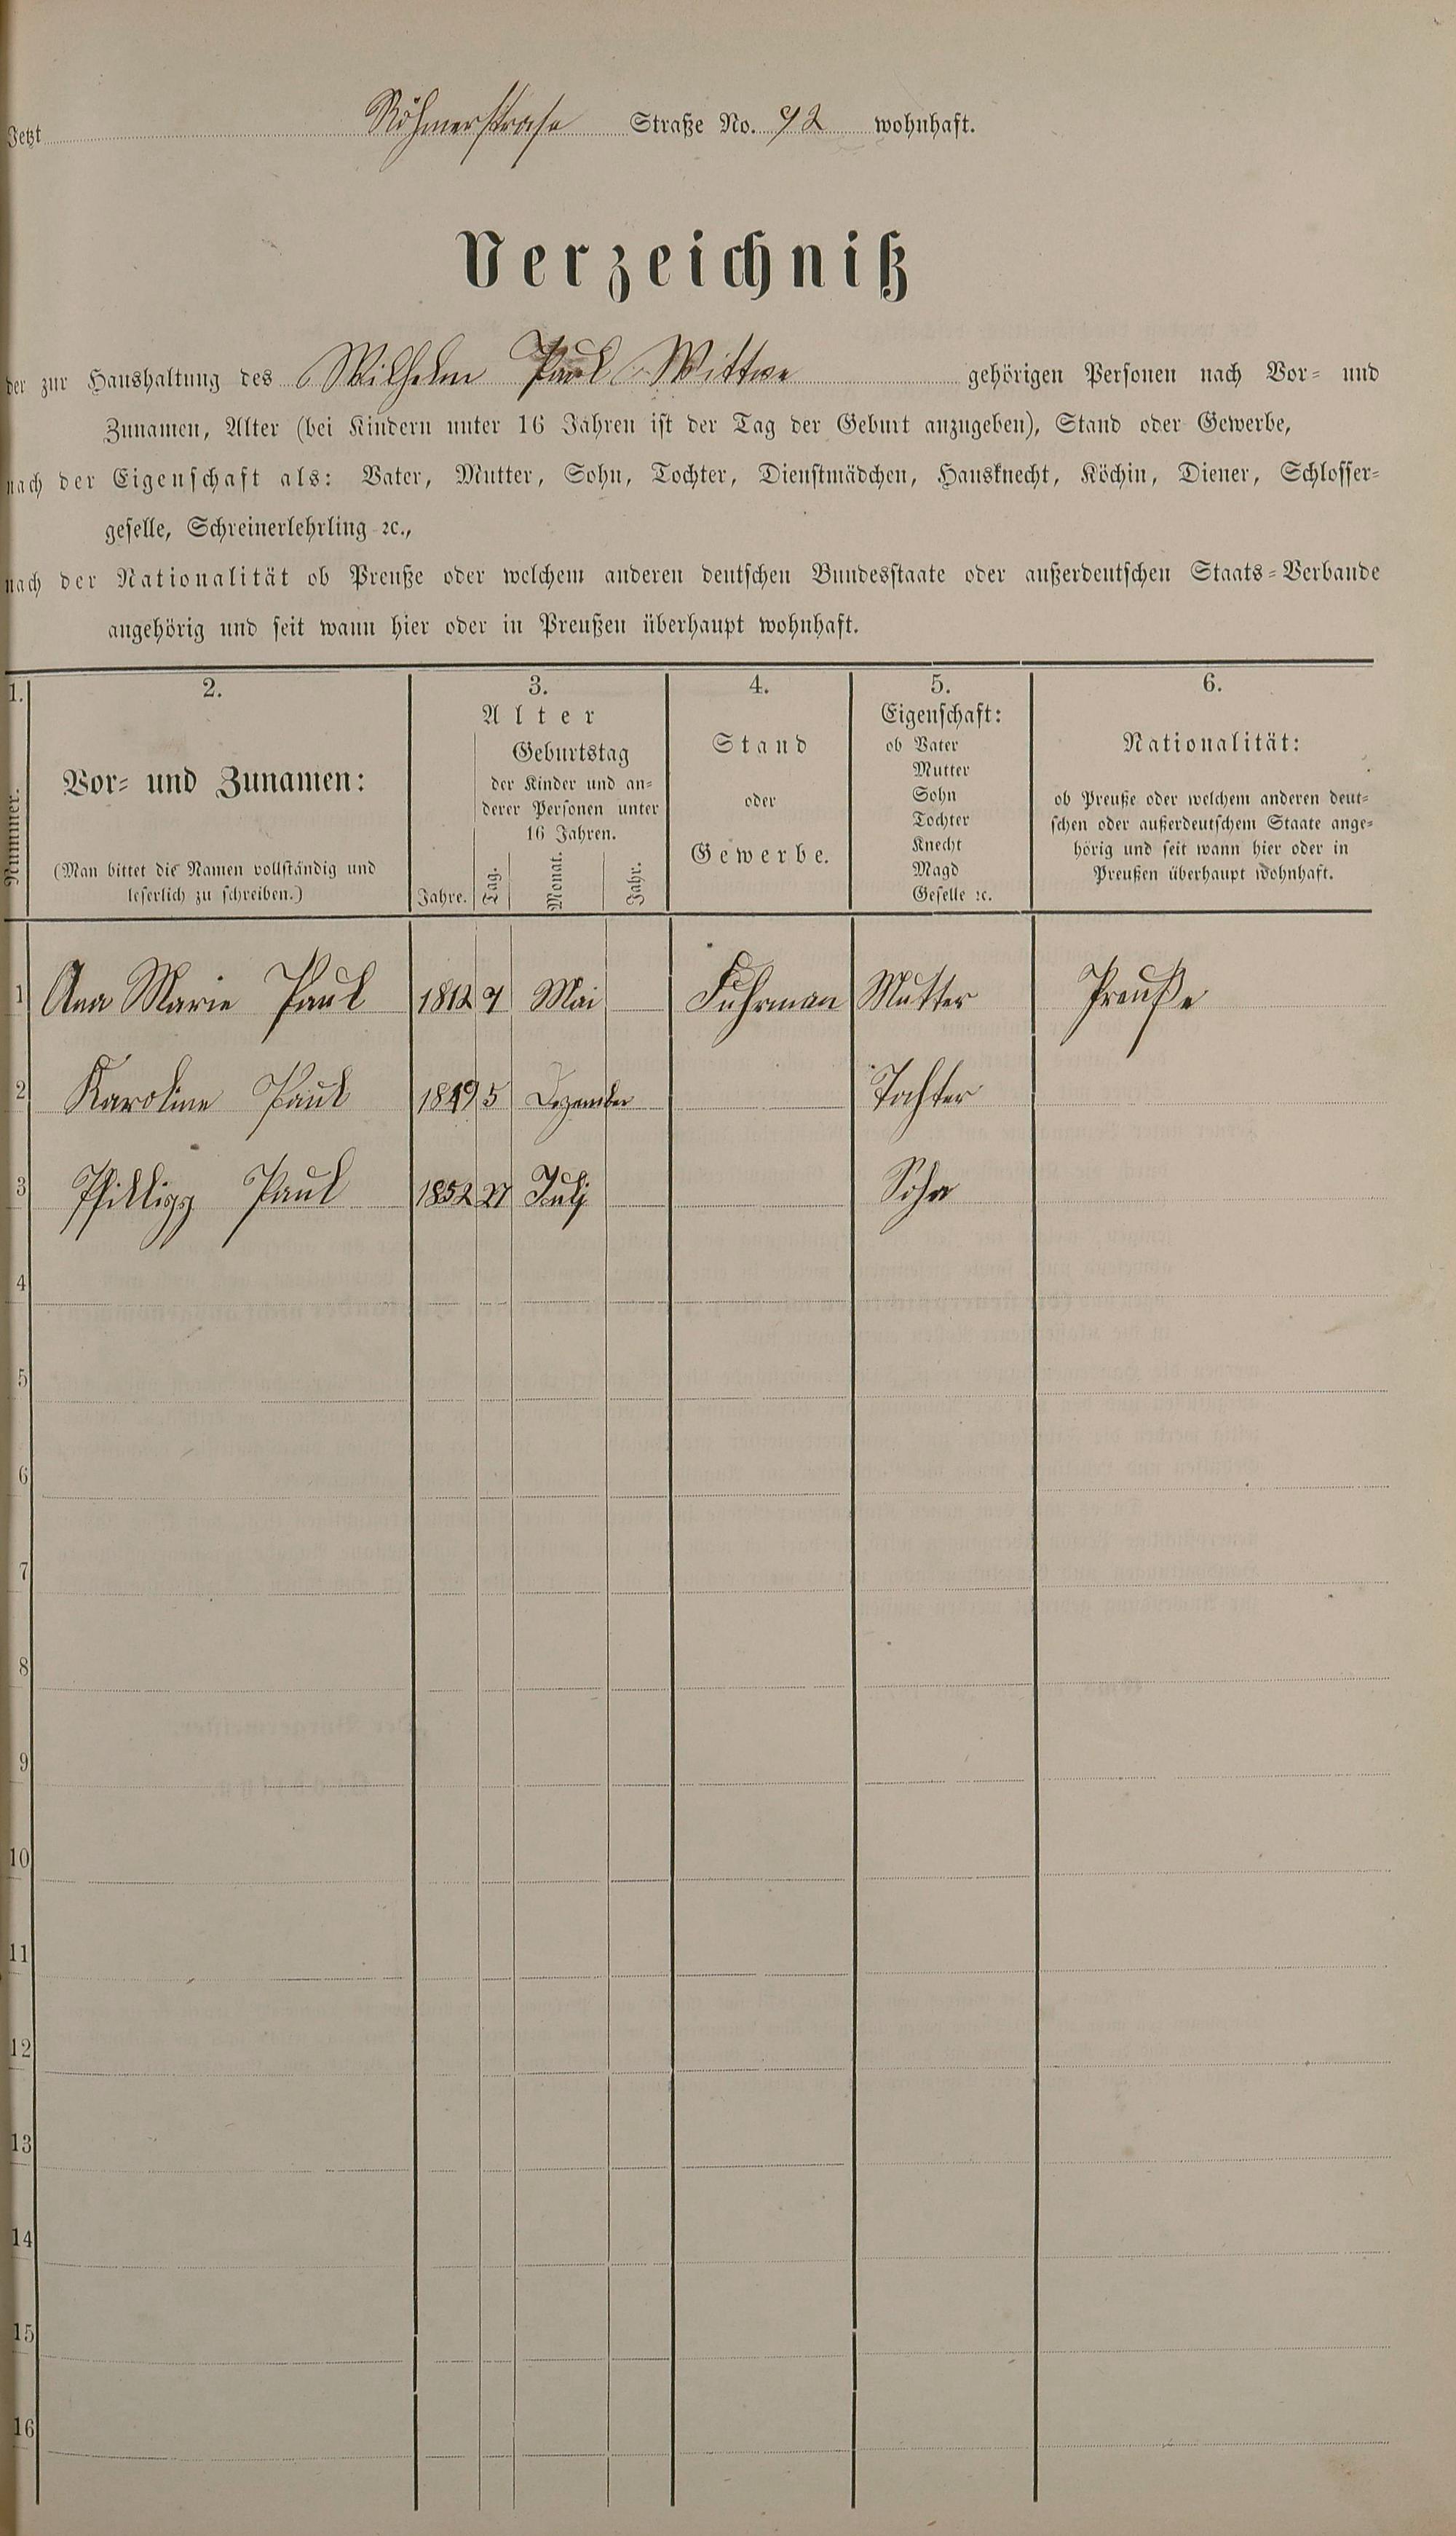 Jetzt Römerstrase Straße No. 92 wohnhaft.
Verzeichniß
der zur Haushaltung des Wilhelm Paul Wittwe gehörigen Personen nach Vor- und
Zunamen, Alter (bei Kindern unter 16 Jahren ist der Tag der Geburt anzugeben), Stand oder Gewerbe,
nach der Eigenschaft als: Vater, Mutter, Sohn, Tochter, Dienstmädchen, Hausknecht, Köchin, Diener, Schlosser-
geselle, Schreinerlehrling ꝛc.,
nach der Nationalität ob Preuße oder welchem anderen deutschen Bundesstaate oder außerdeutschen Staats-Verbande
angehörig und seit wann hier oder in Preußen überhaupt wohnhaft.
1. 2. 3. 4. 5. 6.
Nummer.
Vor- und Zunamen:
(Man bittet die Namen vollständig und
leserlich zu schreiben.)
Alter
Jahre.
Geburtstag
der Kinder und an-
derer Personen unter
16 Jahren.
Tag. Monat. Jahr.
Stand
oder
Gewerbe.
Eigenschaft:
ob Vater
Mutter
Sohn
Tochter
Knecht
Magd
Geselle ꝛc.
Nationalität:
ob Preuße oder welchem anderen deut-
schen oder außerdeutschem Staate ange-
hörig und seit wann hier oder in
Preußen überhaupt wohnhaft.
1 Ana Marie Paul 1812 9 Mai Fuhrman Mutter Preuße
2 Karoline Paul 1849 5 Dezember Tochter
3 Phillipp Paul 1852 27 Juli Sohn
4
5
6
7
8
9
10
11
12
13
14
15
16